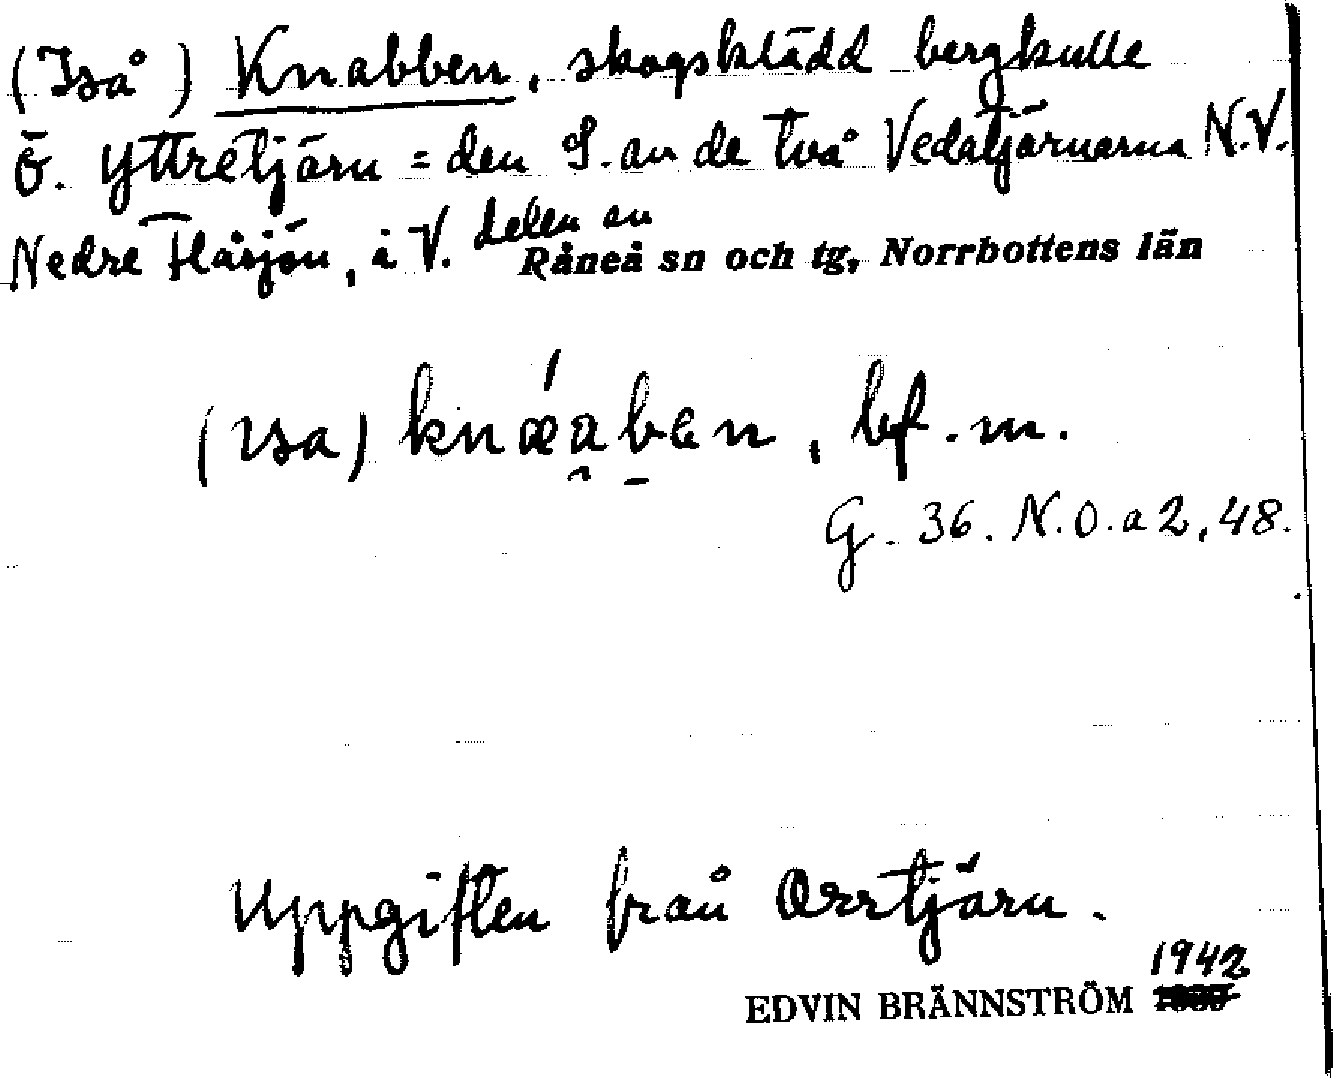 (Iså) Knabben, skogsklädd bergkulle
ö. Yttretjärn = den S. av de två Vedatjärnarna N.V.
Nedre Flåsjön, i V. delen av Råneå sn och tg, Norrbottens län
knǽaben, bf. m.
G. 36. N.O. a 2, 48.
Uppgiften från Orrtjärn.
1942
EDVIN BRÄNNSTRÖM